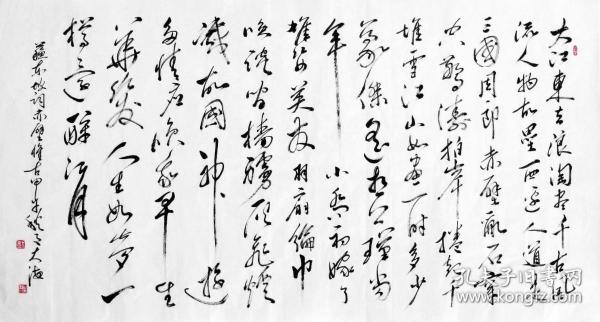 大江東去浪淘盡千古風
流人物故壘西邊人道是
三國周郎赤壁亂石穿
空驚濤拍岸捲起千
堆雪江山如畫一時多少
豪傑遙想公瑾當
年 小喬初嫁了
雄姿英發羽扇綸巾
笑談間檣櫓灰飛煙
滅故國神遊
多情應笑我早生
華發人生如夢一
樽還酹江月
蘇東坡詞赤壁懷古甲午秋大海
孔夫子旧书网
kongfz.com